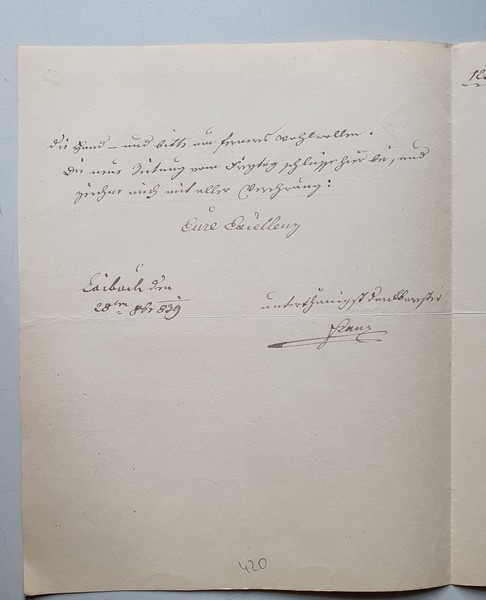 die Hand – und bitte um ferneres Wohlwollen.
Die neue Zeitung vom Freytag schließe hier bei, und
zeichne mich mit aller Verehrung:
Eure Excellenz
Laibach den
28ten 8br 839
unterthänigst
Franz
420